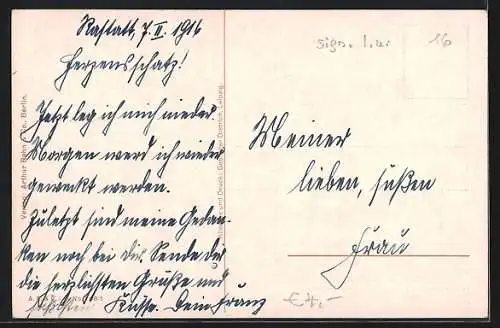 Rastatt, 7. II. 1916
Herzensschatz!
Jetzt leg ich mich nieder.
Morgen werd ich wieder
geweckt werden.
Zuletzt sind meine Gedan-
ken noch bei dir. Sende dir
die herzlichsten Grüße und
Küsse. Dein Franz
Verlag: Arthur Rehn & Co., Berlin.
sign. l. u.
16
Meiner
lieben, süßen
Frau